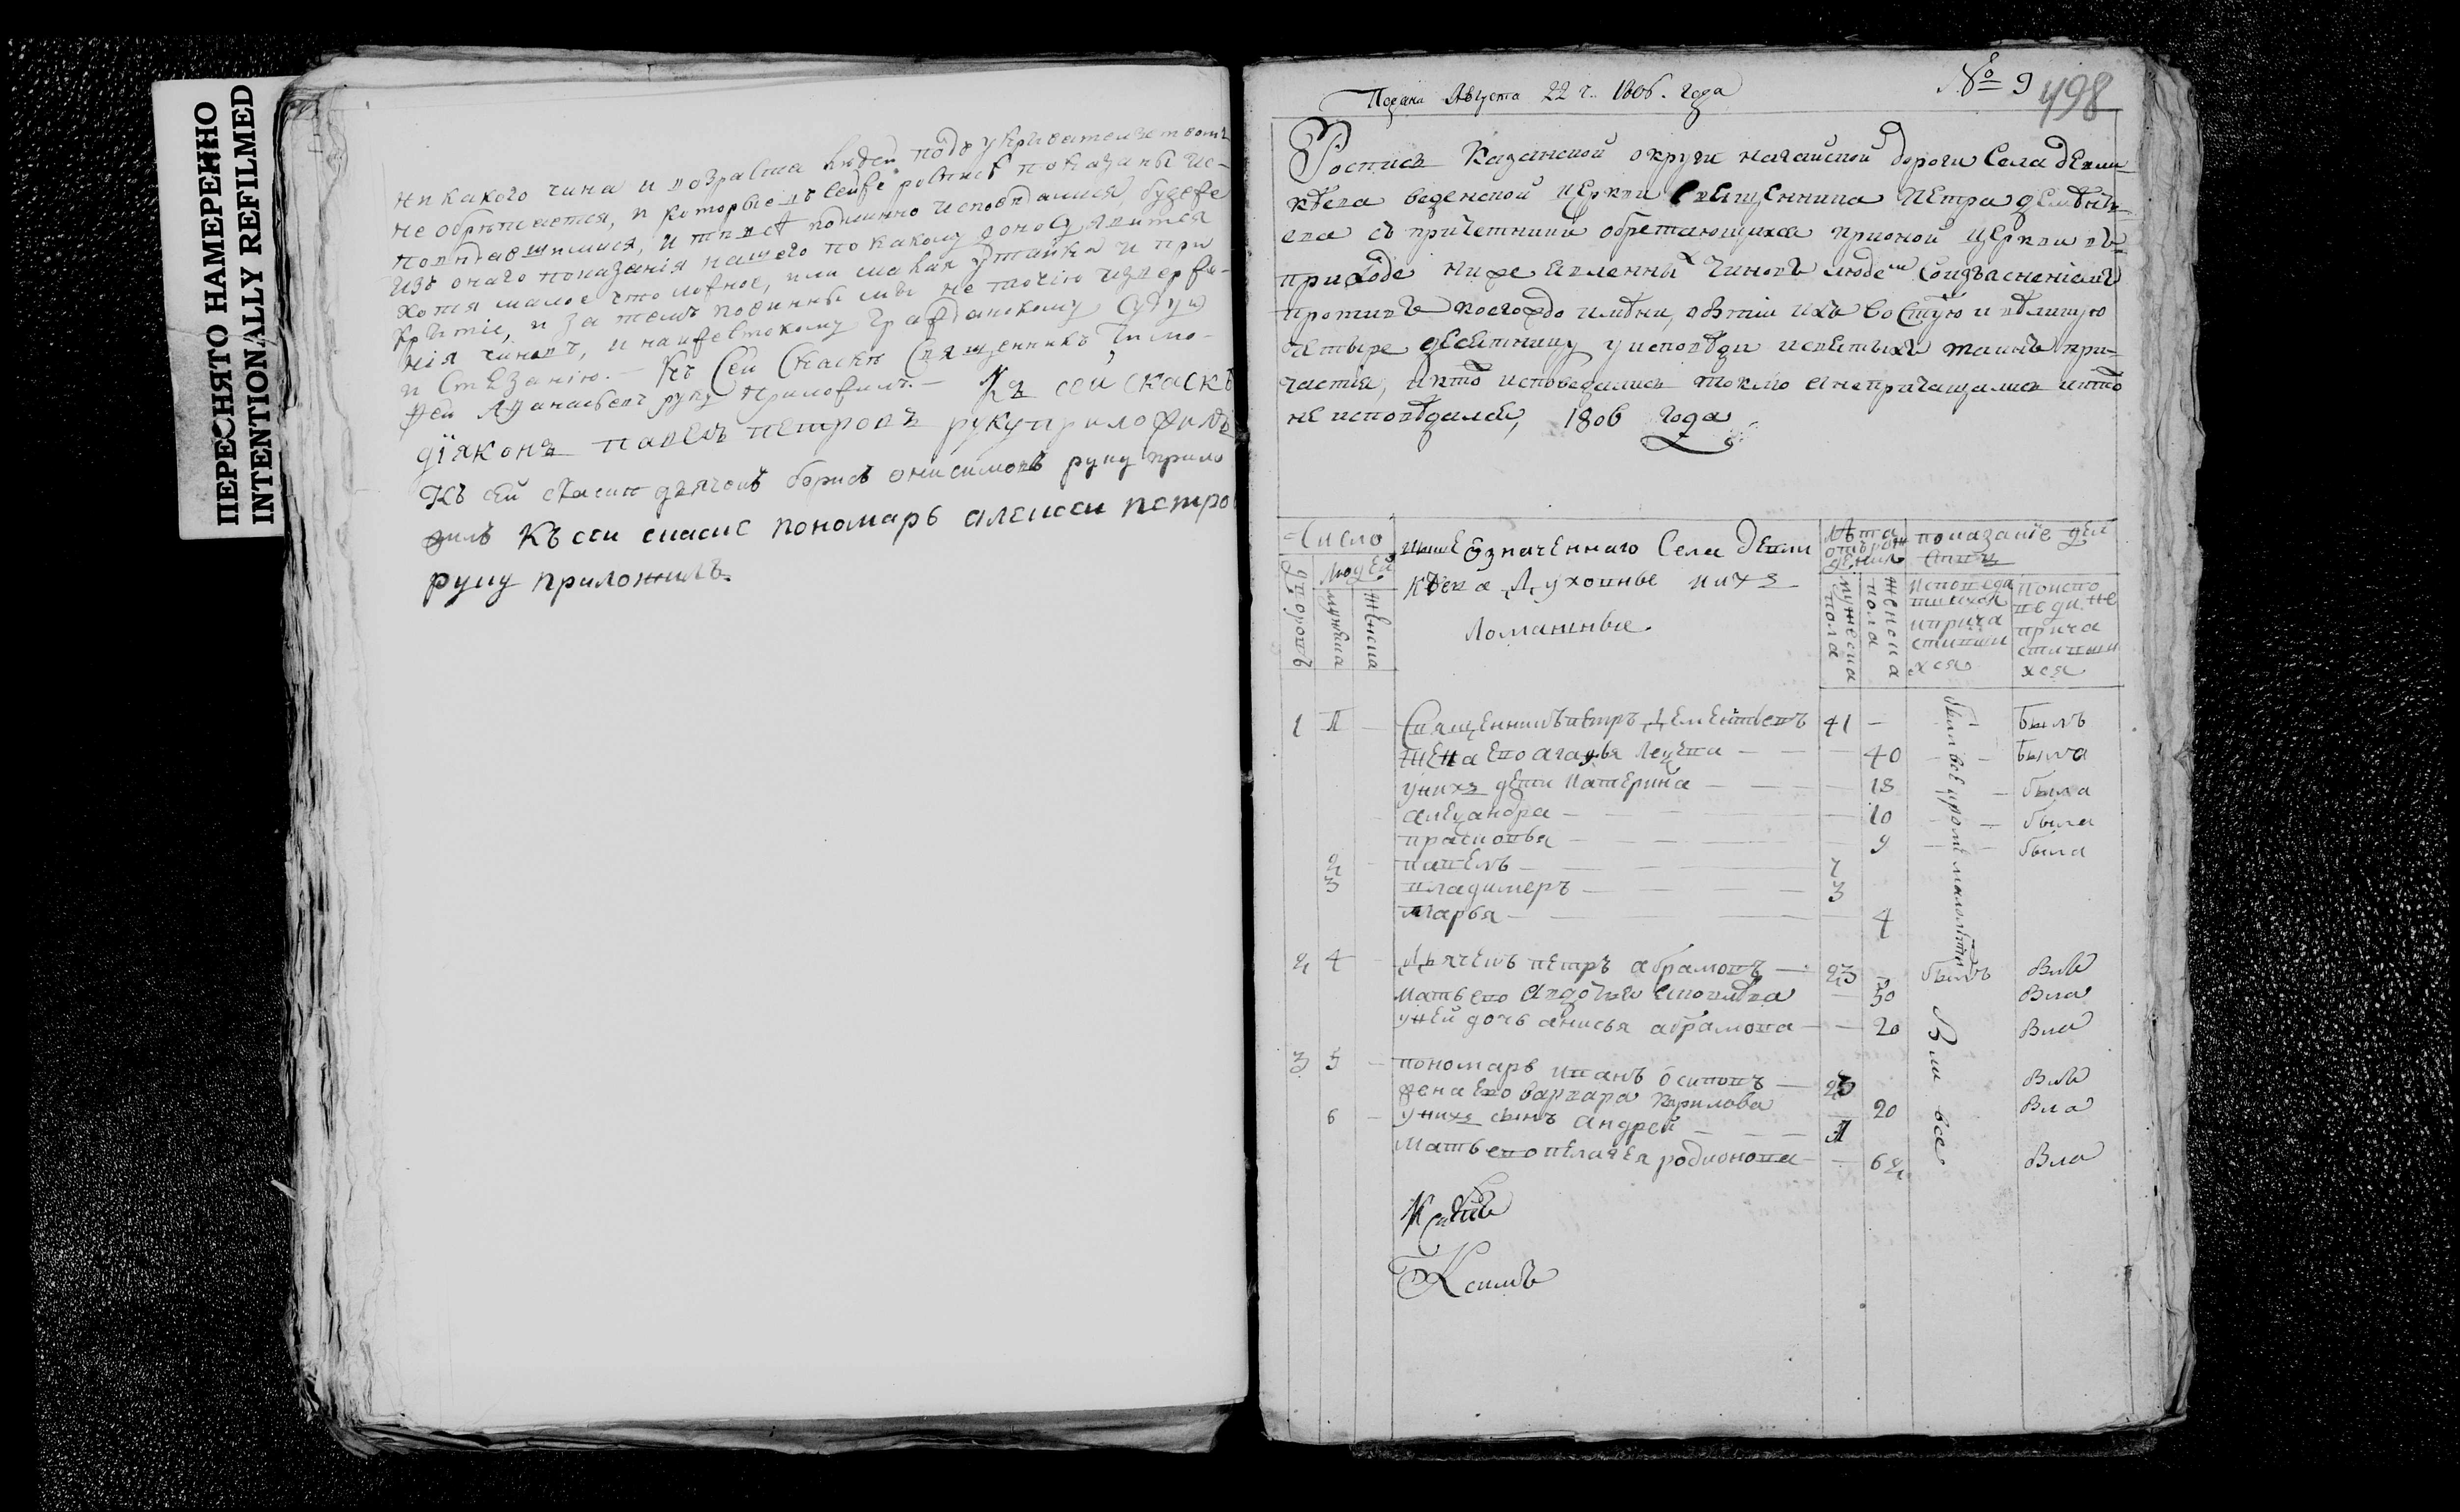 ПЕРЕСНЯТО НАМЕРЕННО
INTENTIONALLY REFILMED
никакого чина и возраста людей подъ укривателствомъ
не обрѣтается, и которые въ сейже росписѣ показаны ис-
повѣдавшимися, и тѣ подлинно исповѣдались, буде же
изъ онаго показанія нашего по какому доносу явится
хотя малое что ложное, или малая утайка и при
крытіе, и за темъ повинны мы не точію изверже-
нія чиновъ, и наижестокому гражданскому суду и
и Стезанію. — Къ Сей Скаскѣ Священникъ Тимо-
фей Афанасьевъ руку приложилъ. — Къ сей скаскѣ
діяконъ павелъ петровъ руку приложилъ
Къ сей скаски дьячокъ борисъ онисимовъ руку прило
жилъ Къ сеи скаске пономарь алексеи петро
руку приложилъ.
Подана Августа 22 ч. 1806. года
№ 9
498
Роспись Казанской округи нагайской дороги Села
веденской церкви Священника Петра
съ причетники обретающихся прионой церкви въ
приходе нижеявленныхъ чиновъ людемъ Соизъяснениемъ
противъ коегождо имѣни, о бытіи ихъ во Стую и великую
четыредесятницу у исповѣди исвятыхъ таинъ при-
частія, икто исповедались токмо а непричащались икто
не исповѣдался, 1806 года
Число
людей
дворовъ
мужеска
женска
Вышеозначеннаго Села
Духовные ихъ
Домашные.
Лѣта
отърож
дения
мужеска пола
женска пола
показание дей
ствъ
исповеда
вшихся
иприча
стивши
хся
поиспо
веди не
прича
стивши
хся
1 1 — Священникъ петръ Дементьевъ 41 — былъ
жена ево агафья — 40 — была
унихъ дети катерина — 18 — была
александра — 10 — была
прасковья — 9 — была
2 павелъ — 7
3 владимеръ — 3
марья — 4
были все кроме малолетныхъ
2 4 — Дьячекъ петръ абрамовъ — 23 — былъ
мать ево — 50
уней дочь анисья абрамова — 20
3 5 — пономарь иванъ осиповъ — 23
жена ево варвара кирилова 20
6 — унихъ сынъ андрей — 1
мать ево пелагея родионова — 62
все